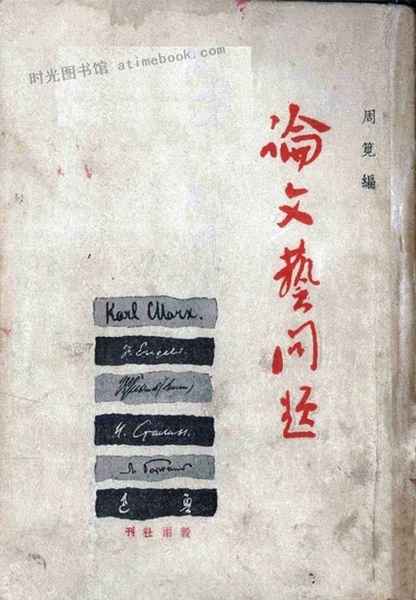 时光图书馆 atimebook.com
周筧編
論文藝問題
Karl Marx.
F. Engels.
И. Сталин.
穀雨社刊